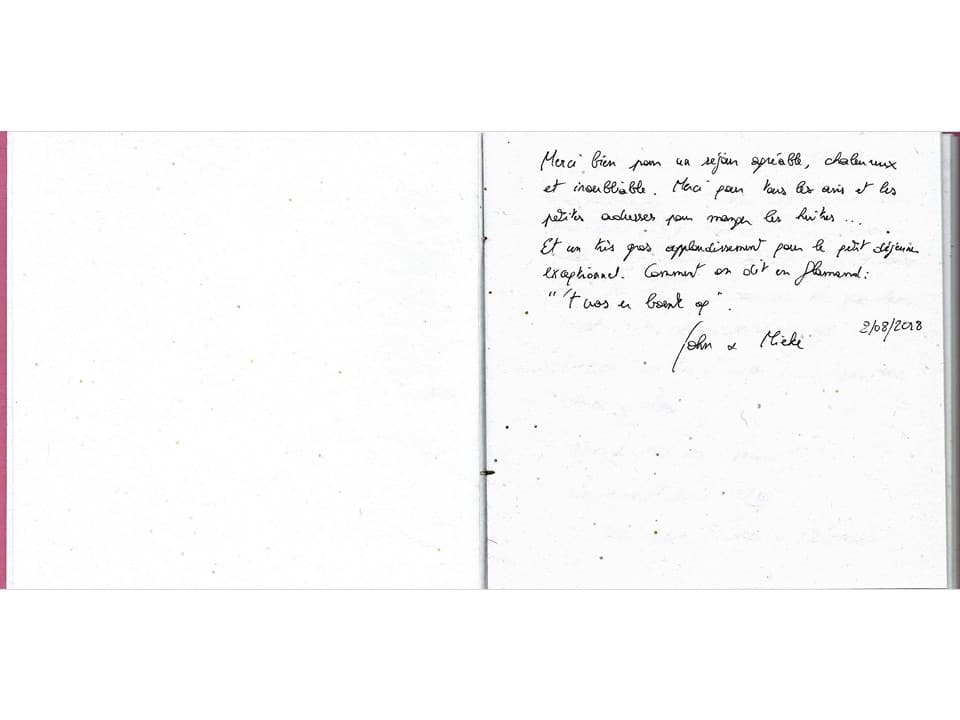 Merci bien pour un sejour agréable, chaleureux
et inoubliable. Merci pour tous les avis et les
petites adresses pour manger les huîtres...
Et un très gros applaudissement pour le petit déjeuner
exceptionnel. Comment on dit en flamand:
"'t was er boenk op".
John & Mieke
2/08/2018